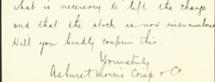 what is necessary to lift the charge
and that the stock is now unencumbered
Will you kindly confirm this.
Yours truly
Ashurst Morris Crisp & Co